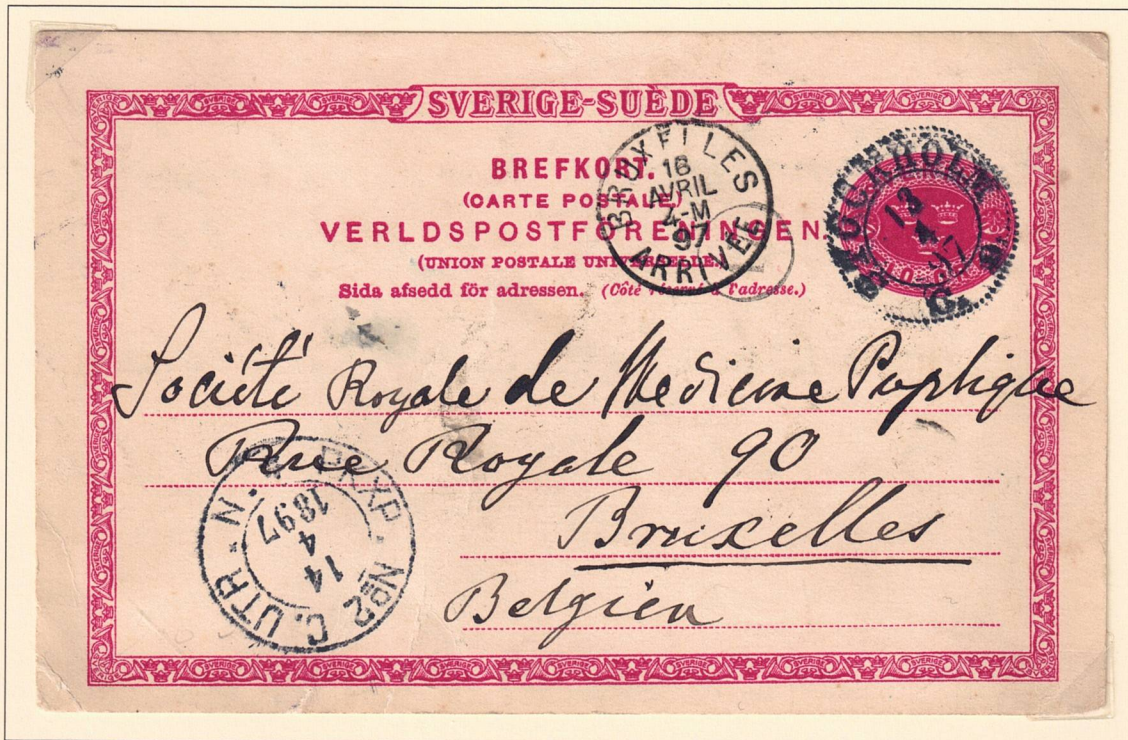 SVERIGE-SUÈDE
BREFKORT.
(CARTE POSTALE)
VERLDSPOSTFÖRENINGEN.
(UNION POSTALE UNIVERSELLE)
Sida afsedd för adressen. (Côté réservé à l'adresse.)
BRUXELLES
16
AVRIL
4-M
97
ARRIVÉE
STOCKHOLM
13
4
97
Société Royale de Medicine Puplique
Rue Royale 90
Bruxelles
Belgien
PKXP. No2 C. UTR. N.
1897
4
14